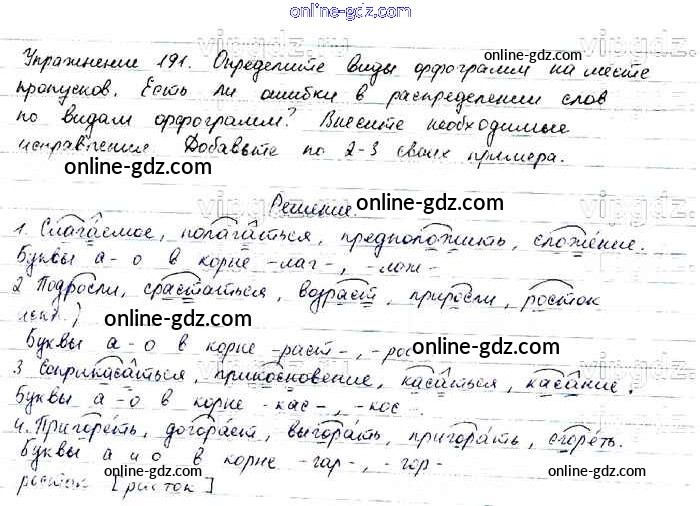 online-gdz.com
online-gdz.com
vipgdz.ru
Упражнение 191. Определите виды орфограмм на месте
online-gdz.com
пропусков. Есть ли ошибки в распределении слов
по видам орфограмм? Внесите необходимые
исправления. Добавьте по 2-3 своих примера.
online-gdz.com
online-gdz.com
Решение.
1. Слагаемое, полагаться, предположить, сложение.
Буквы а-о в корне -лаг-, -лож-
online-gdz.com
2 Подросли, срастаться, возраст, приросли, росток
искл.)
online-gdz.com
Буквы а-о в корне -раст-, -рос
online-gdz.com
3 Соприкасаться, прикосновение, касаться, касание.
Буквы а-о в корне -кас-, -кос-.
4. Пригореть, догорает, выгорать, пригорать, сгореть.
Буквы а и о в корне -гар-, -гор-
online-gdz.com
online-gdz.com
росток [росток]